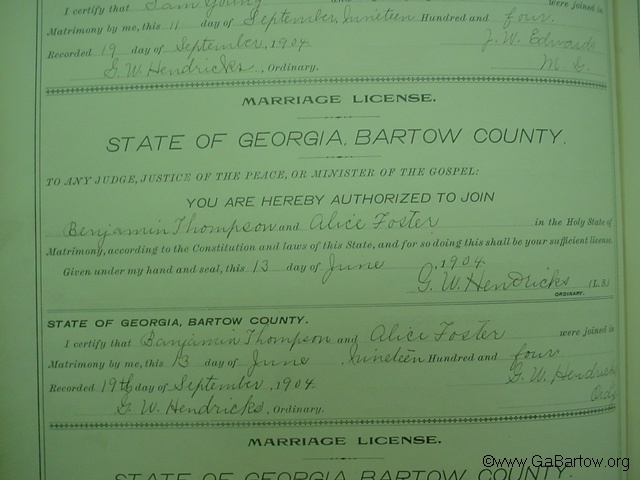 I certify that Sam Young were joined in
Matrimony by me, this 11 day of September, Nineteen Hundred and four.
Recorded 19 day of September, 1904. J. W. Edwards
G. W. Hendricks, Ordinary. M. G.
MARRIAGE LICENSE.
STATE OF GEORGIA, BARTOW COUNTY.
TO ANY JUDGE, JUSTICE OF THE PEACE, OR MINISTER OF THE GOSPEL:
YOU ARE HEREBY AUTHORIZED TO JOIN
Benjamin Thompson and Alice Foster in the Holy State of
Matrimony, according to the Constitution and laws of this State, and for so doing this shall be your sufficient license.
Given under my hand and seal, this 13 day of June, 1904.
G. W. Hendricks (L. S.)
ORDINARY.
STATE OF GEORGIA, BARTOW COUNTY.
I certify that Banjamin Thompson and Alice Foster were joined in
Matrimony by me, this 13 day of June, Nineteen Hundred and four
Recorded 19th day of September, 1904. G. W. Hendricks
G. W. Hendricks, Ordinary. Ordy
MARRIAGE LICENSE.
STATE OF GEORGIA, BARTOW COUNTY.
©www.GaBartow.org